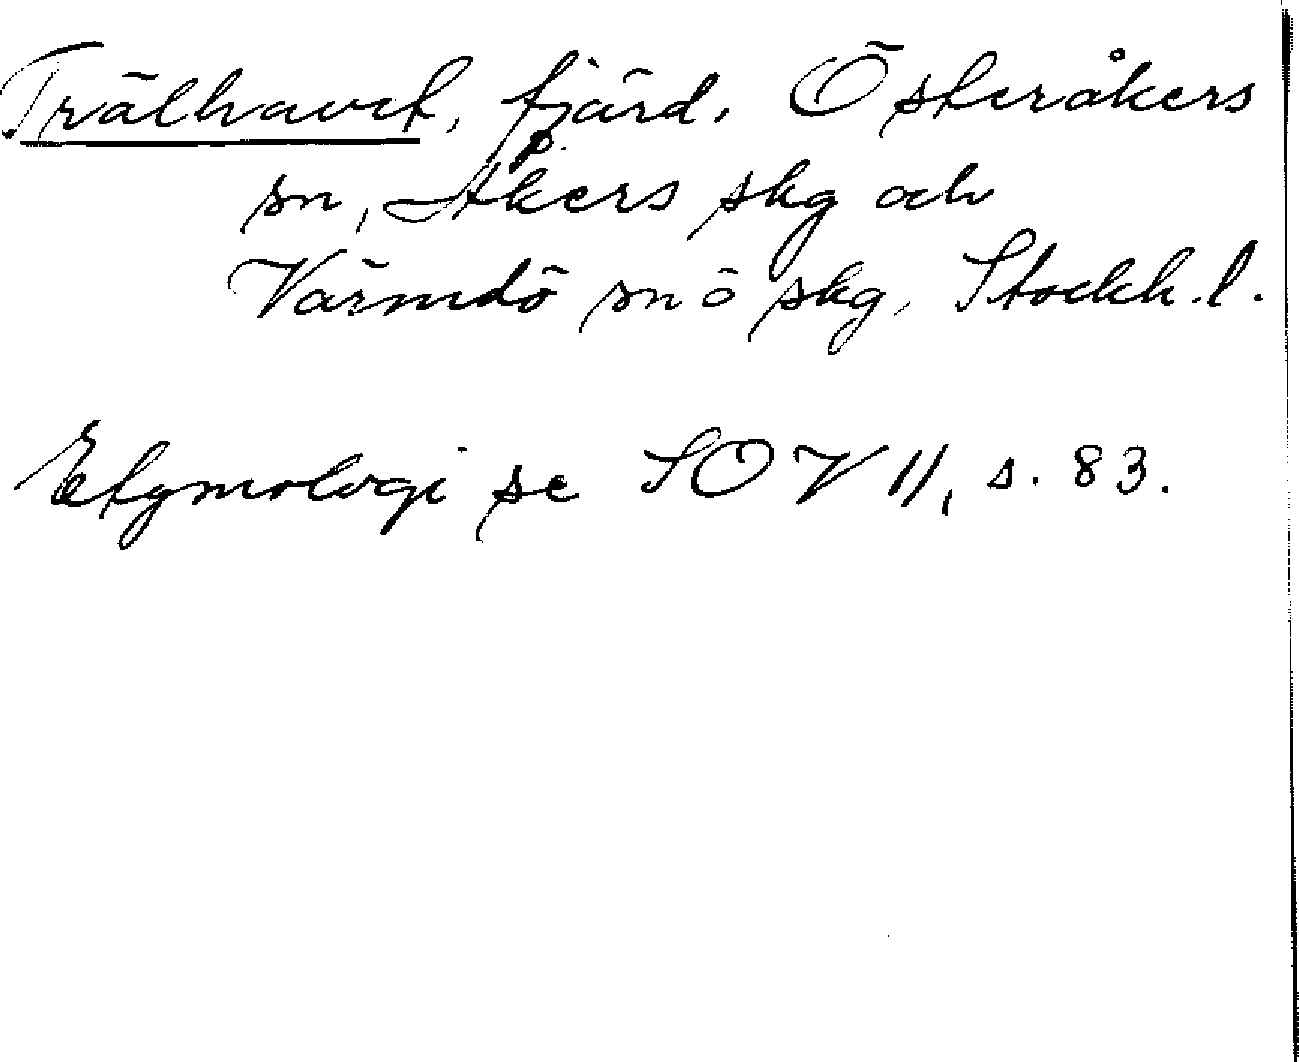 Trälhavet, fjärd, Österåkers
sn, Åkers skg och
Värmdö sn ö skg, Stockh. l.
Etymologi se SOV 11, s. 83.